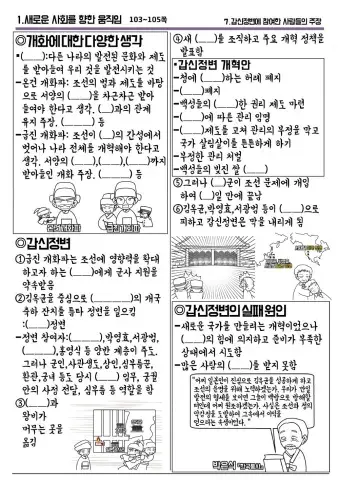 1.새로운 사회를 향한 움직임 103~105쪽
7.갑신정변에 참여한 사람들의 주장
◎개화에 대한 다양한 생각
•(      ):다른 나라의 발전된 문화와 제도
를 받아들여 우리 것을 발전시키는 것
- 온건 개화파: 조선의 법과 제도를 바탕
으로 서양의 (      )을 차근차근 받아
들여야 한다고 생각. (   )과의 관계
유지 주장. (      ) 등
- 급진 개화파: 조선이 (   )의 간섭에서
벗어나 나라 전체를 개혁해야 한다고
생각. 서양의 (    ),(    ),(    )까지
받아들인 개화 주장. (      ) 등
온건개화파
급진개화파
◎갑신정변
①급진 개화파는 조선에 영향력을 확대
하고자 하는 (     )에게 군사 지원을
약속받음
②김옥균을 중심으로 (        )의 개국
축하 잔치를 틈타 정변을 일으킴
:(     )정변
- 정변 참여자:(      ),박영효,서광범,
(      ),홍영식 등 양반 계층이 주도.
그러나 군인,사관생도,상인,심부름꾼,
환관,궁녀 등도 당시 (     ) 임무, 궁궐
안의 사정 전달, 심부름 등 역할을 함
③(     )과
왕비가
머무는 곳을
옮김
④새 (     )를 조직하고 주요 개혁 정책을
발표함
•갑신정변 개혁안
-청에 (     )하는 허례 폐지
-(     )폐지
-백성들의 (     )한 권리 제도 마련
-(     )에 따른 관리 임명
-(     )제도를 고쳐 관리의 부정을 막고
국가 살림살이를 튼튼하게 하기
-부정한 관리 처벌
-백성들의 빚진 쌀 (     )
⑤그러나 (   )군이 조선 문제에 개입
하여 (   )일 만에 끝남
⑥김옥균,박영효,서광범 등이 (     )으로
피하고 갑신정변은 막을 내리게 됨
◎갑신정변의 실패 원인
-새로운 국가를 만들려는 개혁이었으나
(     )의 힘에 의지하고 준비가 부족한
상태에서 시도함
-많은 사람의 (     )를 받지 못함